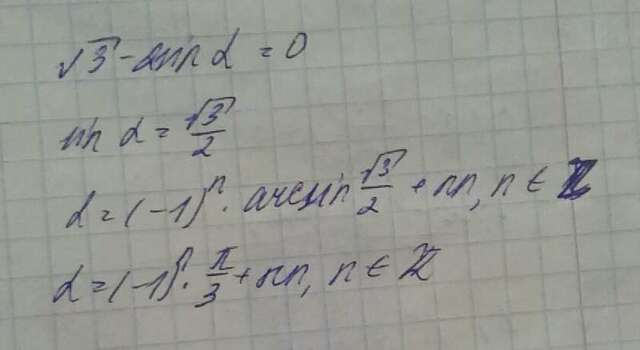 √3 - 2sin α = 0
sin α = √3/2
α = (-1)ⁿ · arcsin √3/2 + πn, n ∈ Z
α = (-1)ⁿ · π/3 + πn, n ∈ Z